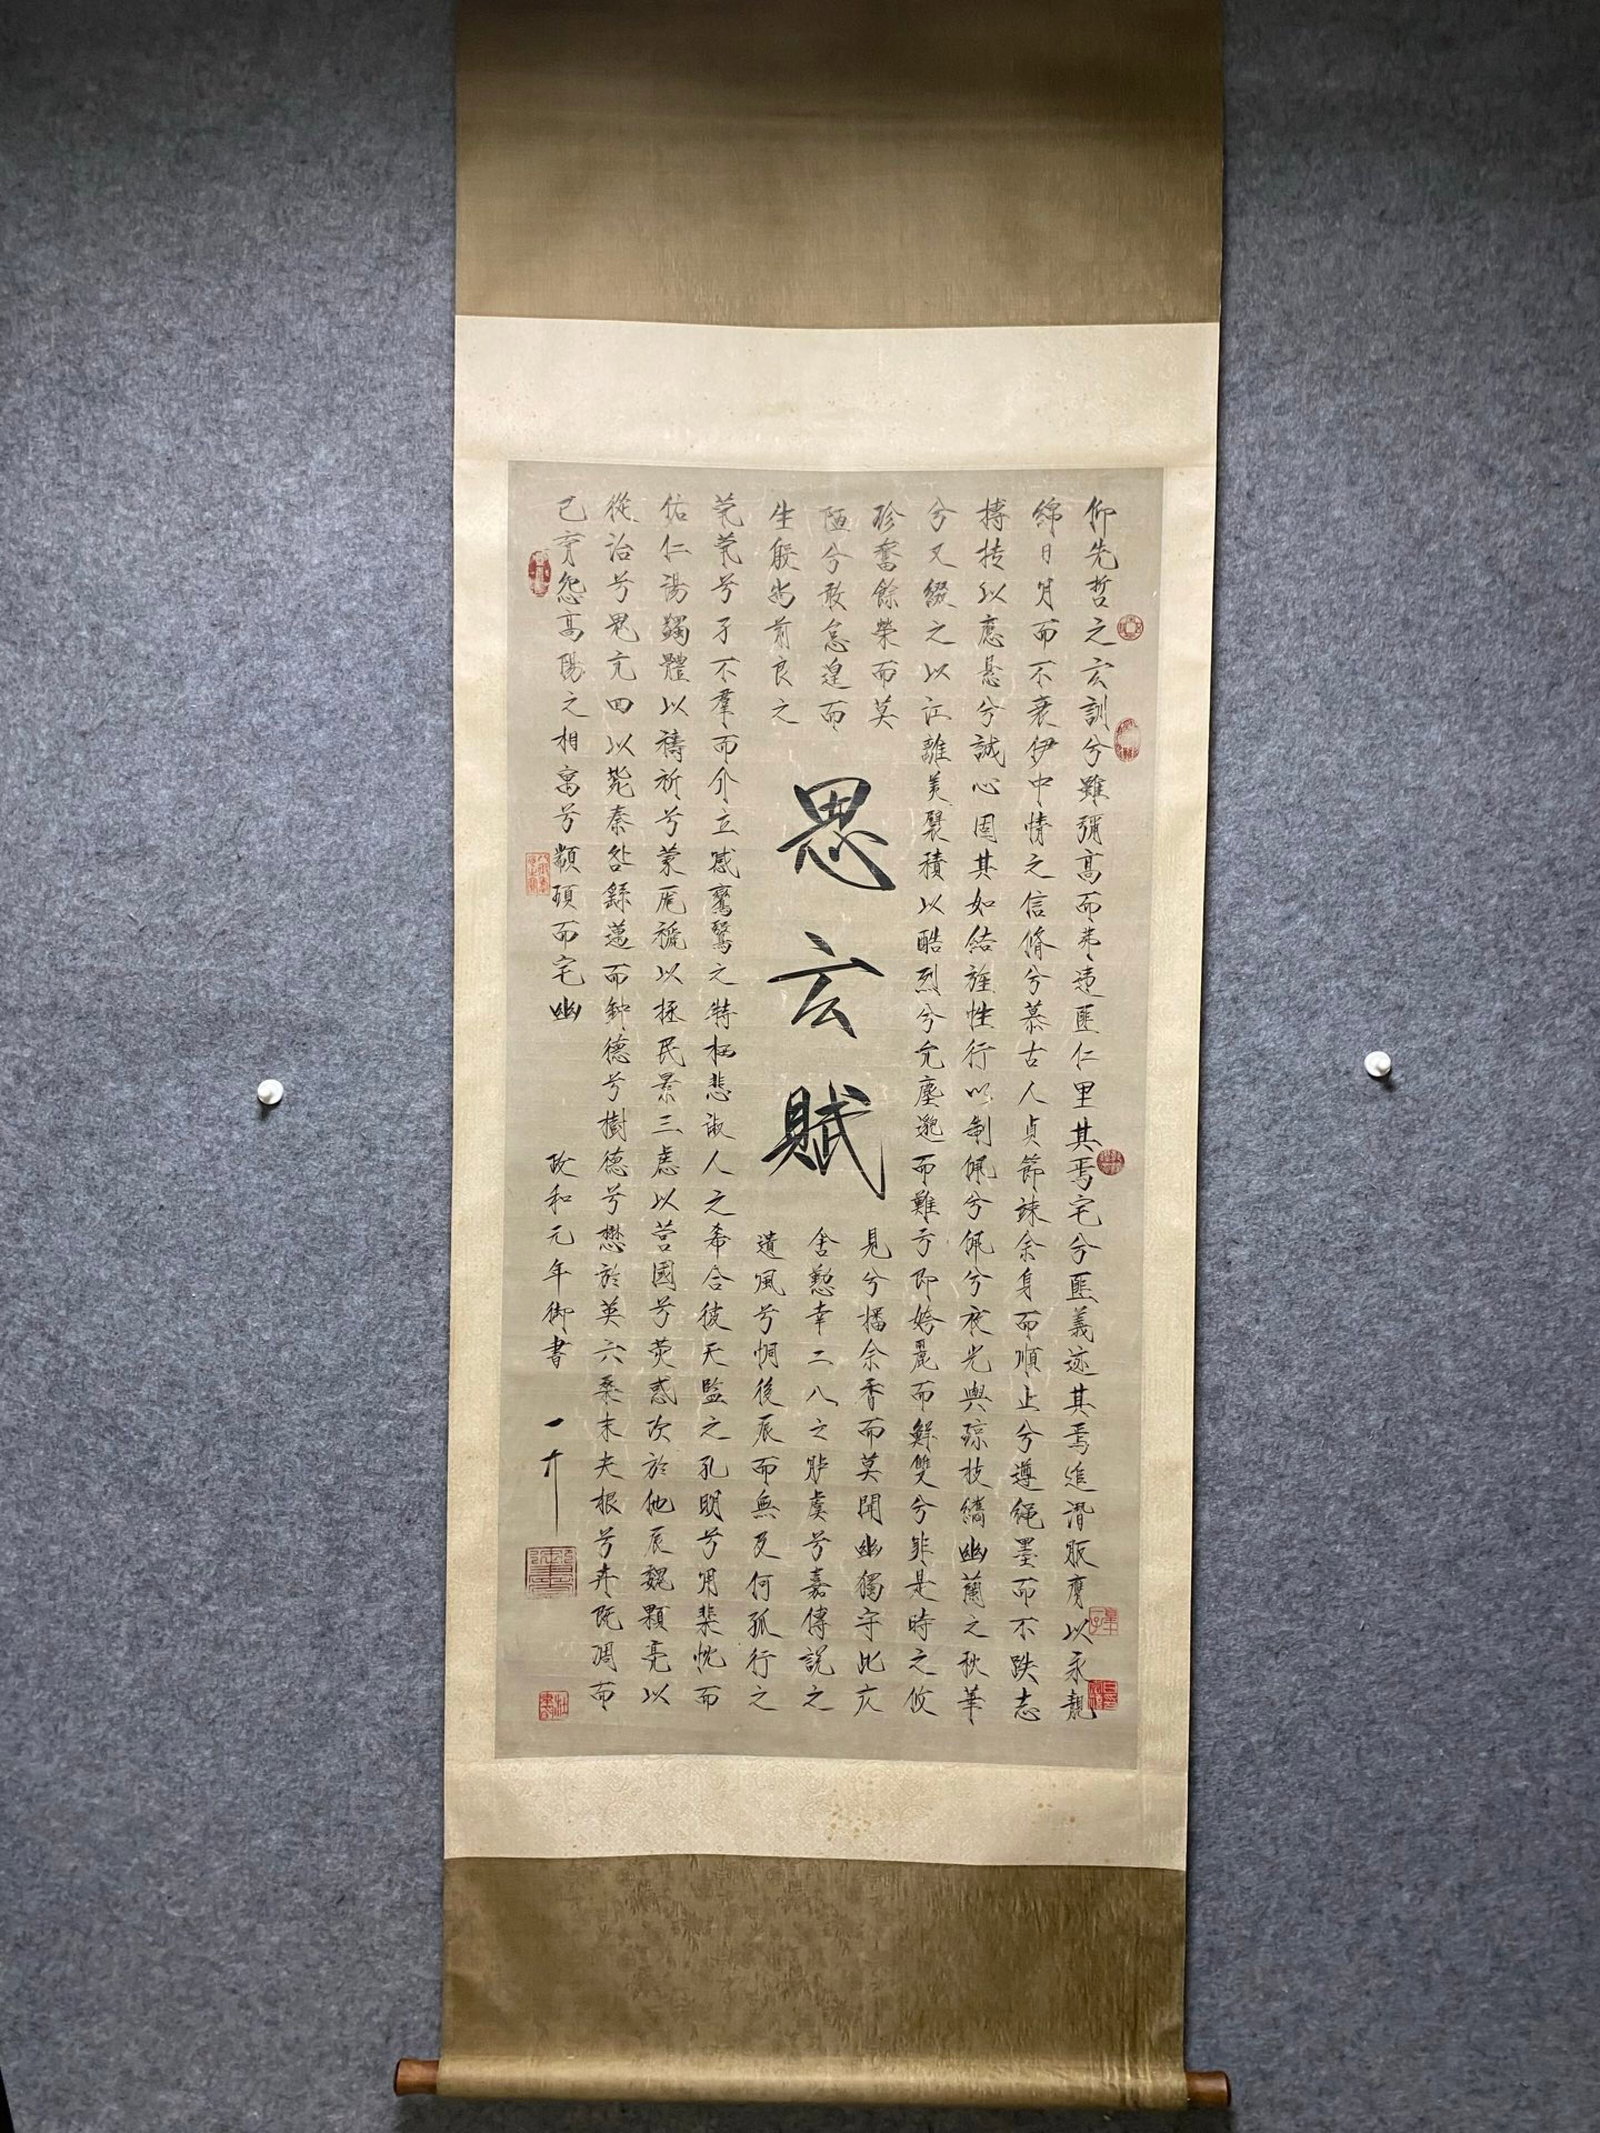 仰先哲之玄訓兮雖彌高而弗違匪仁里其焉宅兮匪義迹其焉追潛服膺以永靚
綿日月而不衰伊中情之信脩兮慕古人貞節竦余身而順止兮遵繩墨而不跌志
摶摶以應懸兮誠心固其如結旌性行以制佩兮佩兮夜光與瓊枝纗幽蘭之秋華
兮又綴之以江離美襞積以酷烈兮允塵邈而難亏即姱麗而鮮雙兮非是時之攸
珍奮餘榮而莫
見兮播余香而莫聞幽獨守此仄
陋兮敢怠遑而
舍懃幸二八之 虞兮嘉傅說之
生殷尚前良之
遺風兮恫後辰而無及何孤行之
煢煢兮孑不羣而介立感鸞鷖之特栖悲淑人之希合彼天監之孔明兮用棐忱而
佑仁湯蠲體以禱祈兮蒙厖禠以拯民景三慮以營國兮熒惑次於他辰魏顆亮以
從治兮鬼亢回以斃秦咎繇邁而 德兮樹德兮懋於英六桑末 夫根兮卉既凋而
已育怨高陽之相寓兮顓頊而宅幽
政和元年御書
思玄賦